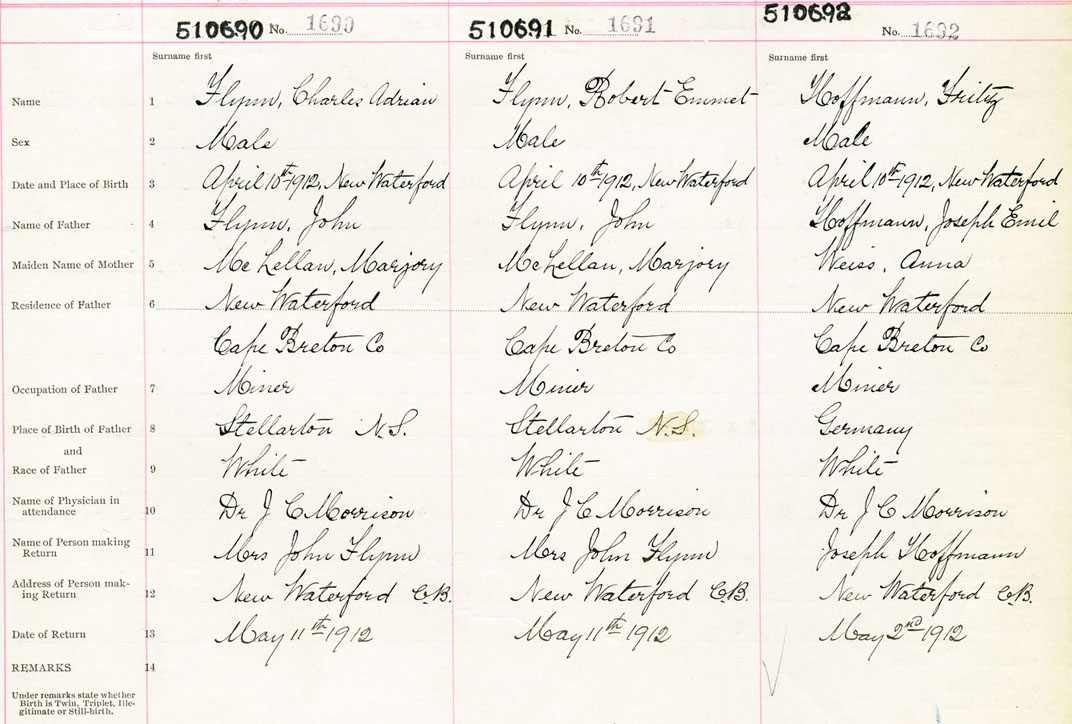 510690 No. 1690 510691 No. 1691 510692 No. 1692
Surname first Surname first Surname first
Name 1 Flynn, Charles Adrian Flynn, Robert Emmet Hoffmann, Fritz
Sex 2 Male Male Male
Date and Place of Birth 3 April 10th 1912, New Waterford April 10th 1912, New Waterford April 10th 1912, New Waterford
Name of Father 4 Flynn, John Flynn, John Hoffmann, Joseph Emil
Maiden Name of Mother 5 McLellan, Marjory McLellan, Marjory Weiss, Anna
Residence of Father 6 New Waterford New Waterford New Waterford
Cape Breton Co Cape Breton Co Cape Breton Co
Occupation of Father 7 Miner Miner Miner
Place of Birth of Father 8 Stellarton N.S. Stellarton N.S. Germany
and
Race of Father 9 White White White
Name of Physician in
attendance 10 Dr J C Morrison Dr J C Morrison Dr J C Morrison
Name of Person making
Return 11 Mrs John Flynn Mrs John Flynn Joseph Hoffmann
Address of Person mak-
ing Return 12 New Waterford C.B. New Waterford C.B. New Waterford C.B.
Date of Return 13 May 11th 1912 May 11th 1912 May 2nd 1912
REMARKS 14
Under remarks state whether
Birth is Twin, Triplet, Ille-
gitimate or Still-birth.